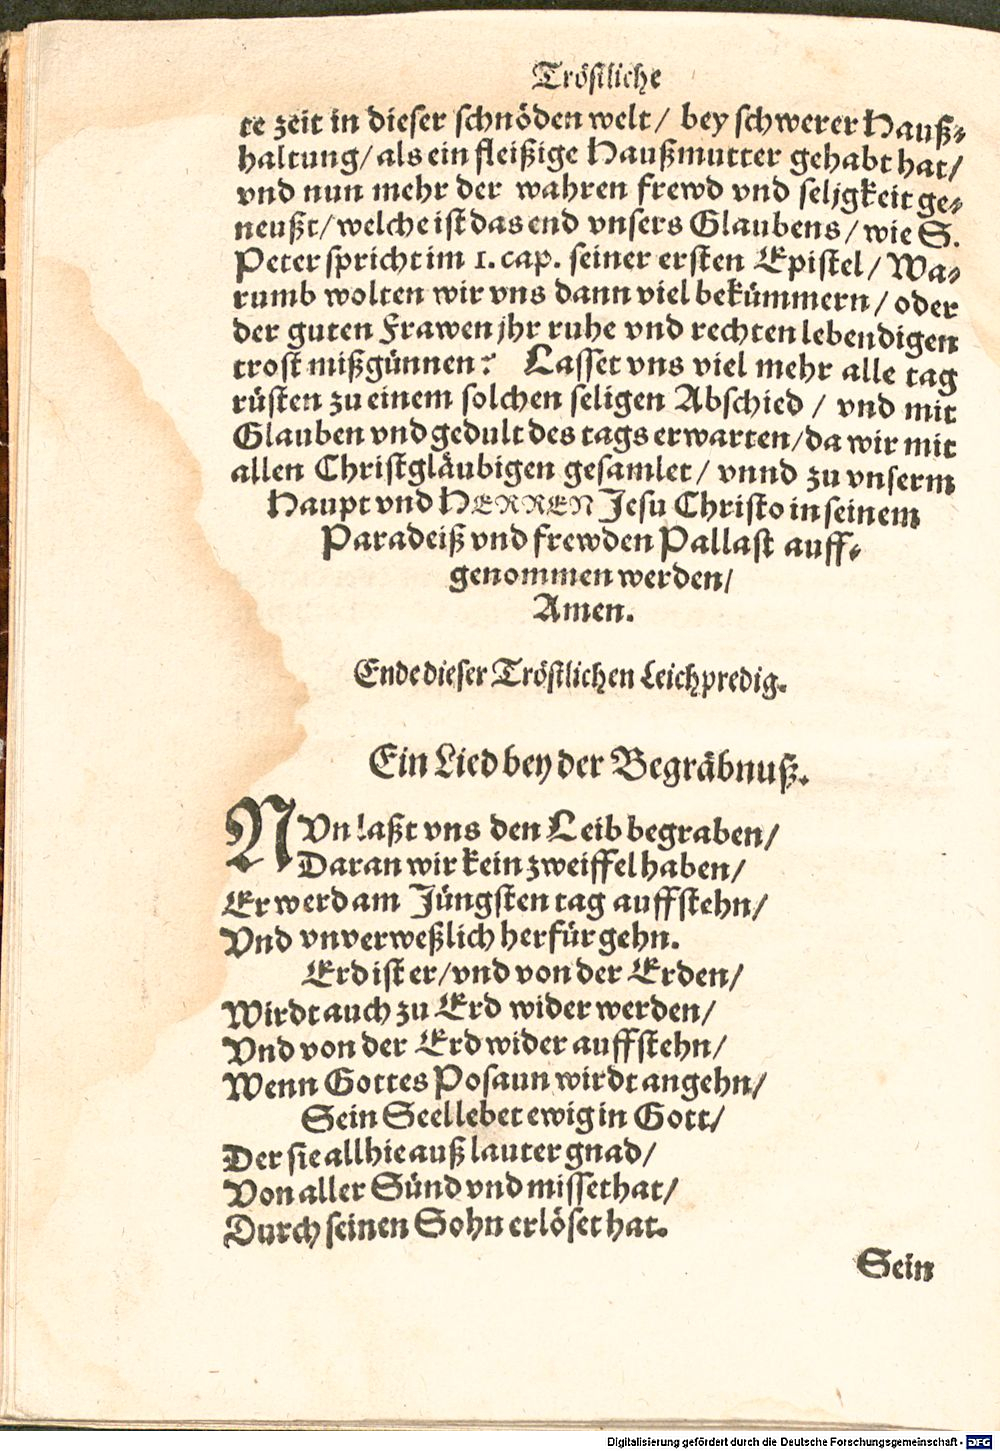 Tröstliche
te zeit in dieser schnöden welt/ bey schwerer Hauß-
haltung/ als ein fleißige Haußmutter gehabt hat/
vnd nun mehr der wahren frewd vnd seljgkeit ge-
neußt/ welche ist das end vnsers Glaubens/ wie S.
Peter spricht im 1. cap. seiner ersten Epistel/ Wa-
rumb wolten wir vns dann viel bekümmern/ oder
der guten Frawen jhr ruhe vnd rechten lebendigen
trost mißgünnen? Lasset vns viel mehr alle tag
rüsten zu einem solchen seligen Abschied/ vnd mit
Glauben vnd gedult des tags erwarten/ da wir mit
allen Christgläubigen gesamlet/ vnnd zu vnserm
Haupt vnd HERREN Jesu Christo in seinem
Paradeiß vnd frewden Pallast auff-
genommen werden/
Amen.
Ende dieser Tröstlichen Leichpredig.
Ein Lied bey der Begräbnuß.
NVn laßt vns den Leib begraben/
Daran wir kein zweiffel haben/
Er werd am Jüngsten tag auffstehn/
Vnd vnverweßlich herfür gehn.
Erd ist er/ vnd von der Erden/
Wirdt auch zu Erd wider werden/
Vnd von der Erd wider auffstehn/
Wenn Gottes Posaun wirdt angehn/
Sein Seel lebet ewig in Gott/
Der sie allhie auß lauter gnad/
Von aller Sünd vnd missethat/
Durch seinen Sohn erlöset hat.
Sein
Digitalisierung gefördert durch die Deutsche Forschungsgemeinschaft - DFG